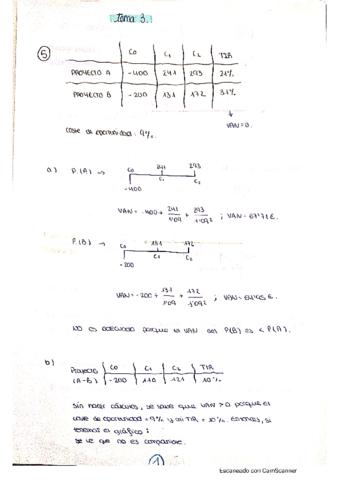 Tema 3.
5
C0 C1 C2 TIR
PROYECTO A -400 241 293 21%
PROYECTO B -200 131 172 31%
VAN=0.
coste de oportunidad: 9%.
a) P.(A) → C0 241 293
-400 C1 C2
VAN = -400 + 241/1'09 + 293/1'09² ; VAN = 67'71 €.
P.(B) → C0 131 172
-200 C1 C2
VAN = -200 + 131/1'09 + 172/1'09² ;
NO es adecuado porque el VAN del P(B) es < P(A).
b) Proyecto C0 C1 C2 TIR
(A-B) -200 110 121 10%
sin hacer cálculos, se sabe que VAN > 0 porque el
coste de oportunidad = 9% y mi TIR = 10%. Entonces, si
tenemos el gráfico:
se ve que no es
1
Escaneado con CamScanner